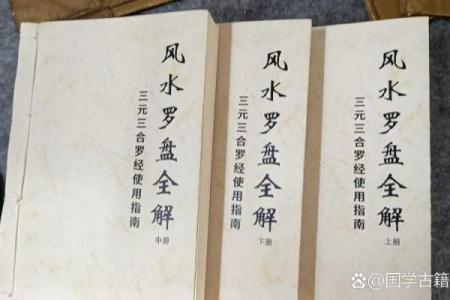 风水罗盘全解
三元三合罗经使用指南
中册
风水罗盘全解
三元三合罗经使用指南
下册
风水罗盘全解
三元三合罗经使用指南
上册
@国学古籍